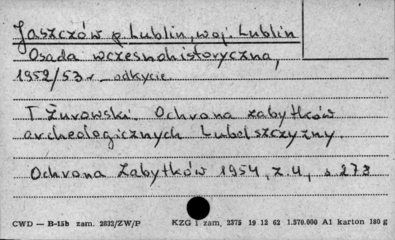 Jaszczów p. Lublin, woj. Lublin
Osada wczesnohistoryczna,
1952/53 r. odkycie.
T Żurowski. Ochrona zabytków
archeologicznych Lubelszczyzny.
Ochrona Zabytków 1954, z.4, s 273
CWD — B-15b zam. 2832/ZW/P KZG 1 zam. 2375 19 12 62 1.570.000 A1 karton 180 g